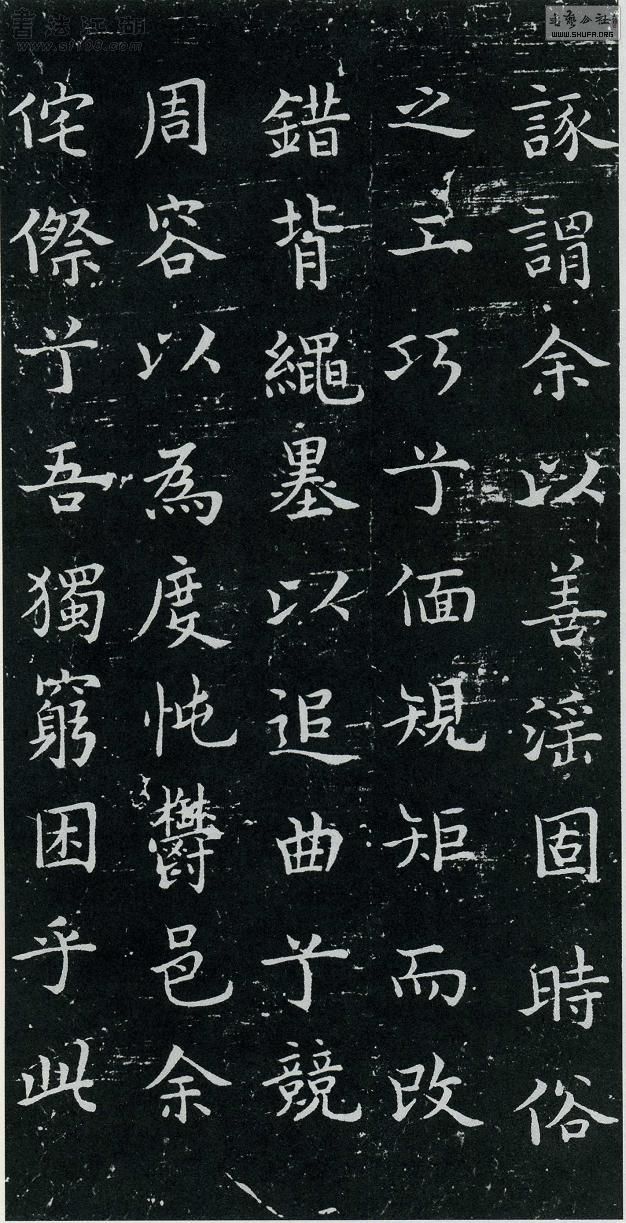 諑謂余以善滛固時俗
之工巧兮偭規矩而改
錯背繩墨以追曲兮競
周容以為度忳鬱邑余
侘傺兮吾獨窮困乎此
書法江湖
www.sf108.com
WWW.SHUFA.ORG